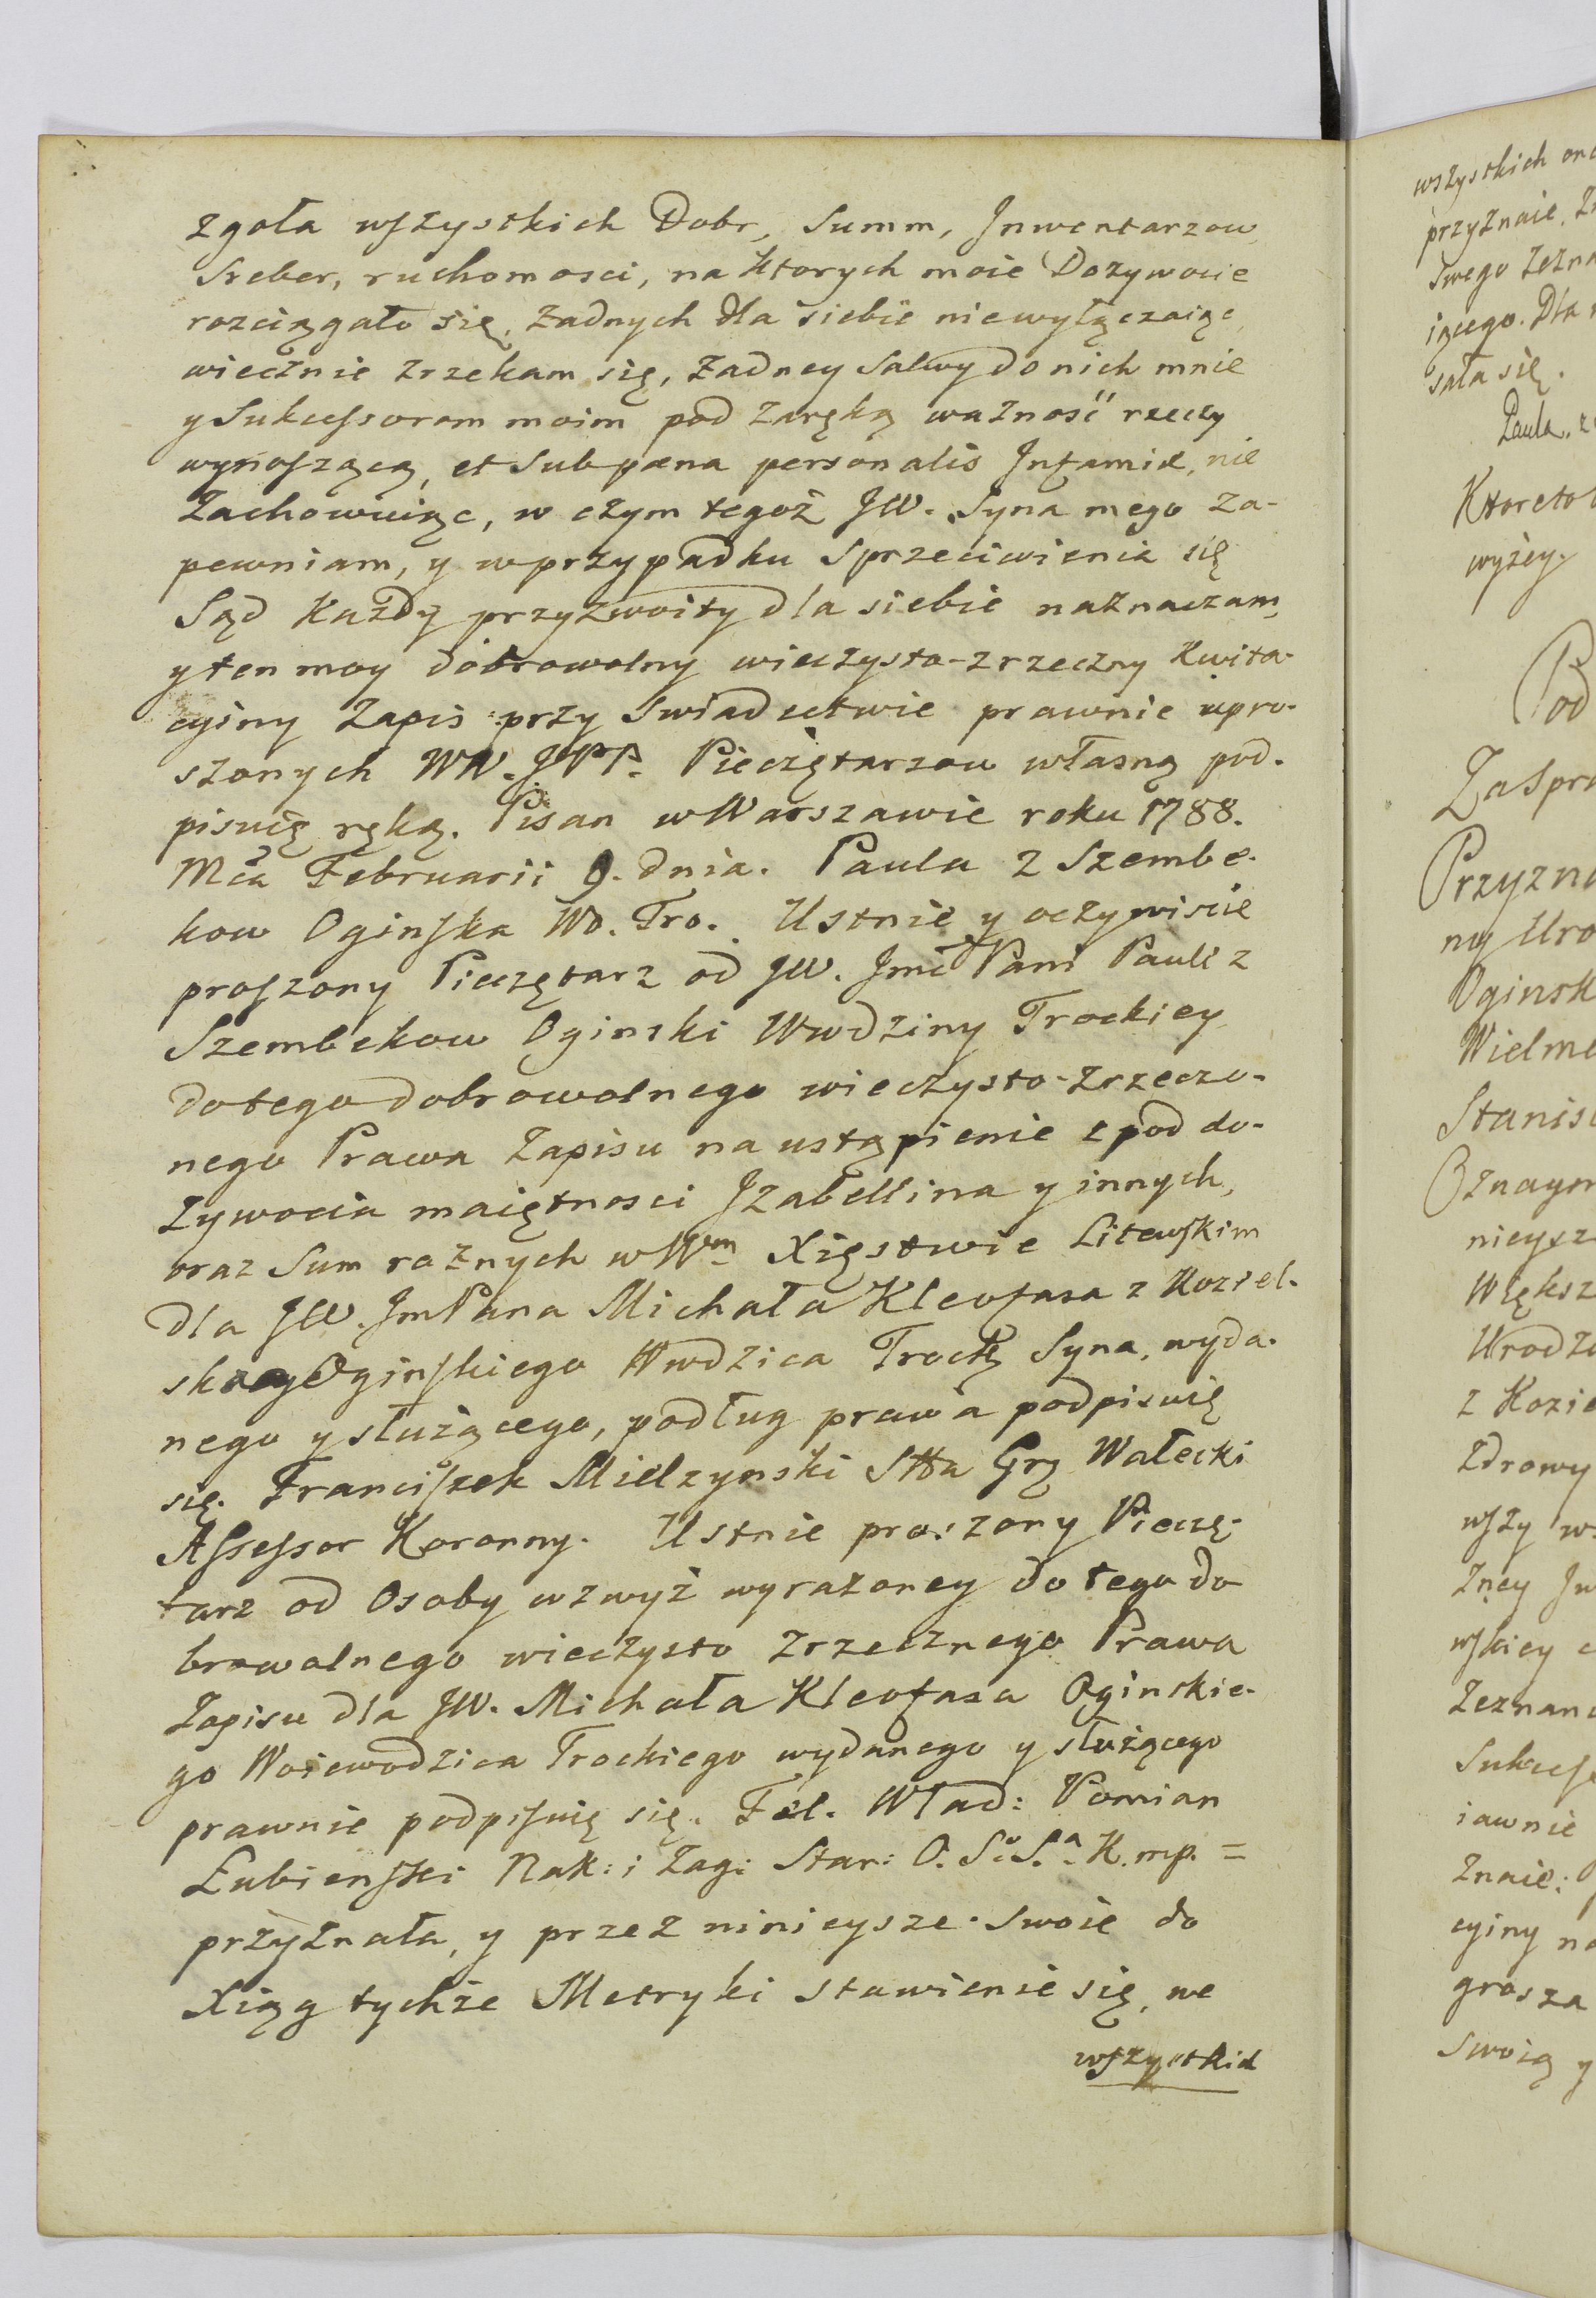 zgoła wszystkich Dobr, Summ, Inwentarzow,
Sreber, ruchomosci, na ktorych moie Dozywocie
rozciągało się, żadnych dla siebie niewyłączaiąc,
wiecznie zrzekam się, żadney Salwy do nich mnie
y Sukcessorom moim pod zaręką ważność rzeczy
wynoszącą, et sub pœna personalis Infamiæ, nie
zachowuiąc, w czym tegoż JW. Syna mego za-
pewniam, y w przypadku sprzeciwienia się
Sąd każdy przyzwoity dla siebie naznaczam,
y ten moy dobrowolny wieczysto-zrzeczny kwita-
cyiny Zapis przy Swiadectwie prawnie upro-
szonych WW. JPP. Pieczętarzow własną pod-
pisuię ręką. Pisan w Warszawie roku 1788.
Mca Februarii 9. dnia. Paula z Szembe-
kow Oginska Wo. Tro. Ustnie y oczywiscie
proszony Pieczętarz od JW. Jmć Pani Pauli z
Szembekow Oginski Wwdziny Trockiey
do tego dobrowolnego wieczysto-zrzeczo-
nego Prawa Zapisu na ustąpienie z pod do-
zywocia maiętnosci Izabellina y innych,
oraz Sum rożnych w Wm Xięstwie Litewskim
dla JW. JmPana Michała Kleofasa z Koziel-
ska Oginskiego Wwdzica Trockg Syna, wyda-
nego y służącego, podług prawa podpisuię
się. Franciszek Mielzynski Stta Grg Wałecki
Assessor Koronny. Ustnie proszony Pieczę-
tarz od Osoby wzwyż wyrażoney do tego do
browolnego wieczysto zrzecznego Prawa
Zapisu dla JW. Michała Kleofasa Oginskie-
go Woiewodzica Trockiego wydanego y służącego
prawnie podpisuię się. Fel. Wład: Pomian
Łubienski Nak: i Zag: Star: O. S. S.a K. mp. =
przyznała, y przez ninieysze swoie do
Xiąg tychże Metryki stawienie się, we
wszystkich
wszystkich
przyznaie.
swego
iącego. Dla
sała się.
Paula.
wyżey.
Pod
Przyzna
ny Uro
Oginsk
Wielmo
Stanis
Oznaym
nieysz
Większ
Urodzo
z Kozie
zdrowy
wszy
żney
wskiey
Zeznan
Sukcess
iawnie
Znaie:
cyiny na
grosza
Swoią y